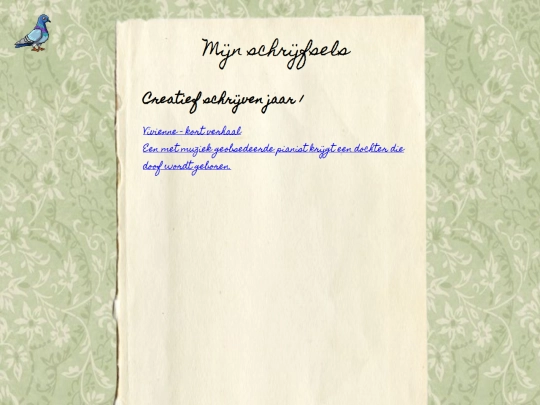 Mijn schrijfsels
Creatief schrijven jaar 1
Vivienne - kort verhaal
Een met muziek geobsedeerde pianist krijgt een dochter die
doof wordt geboren.